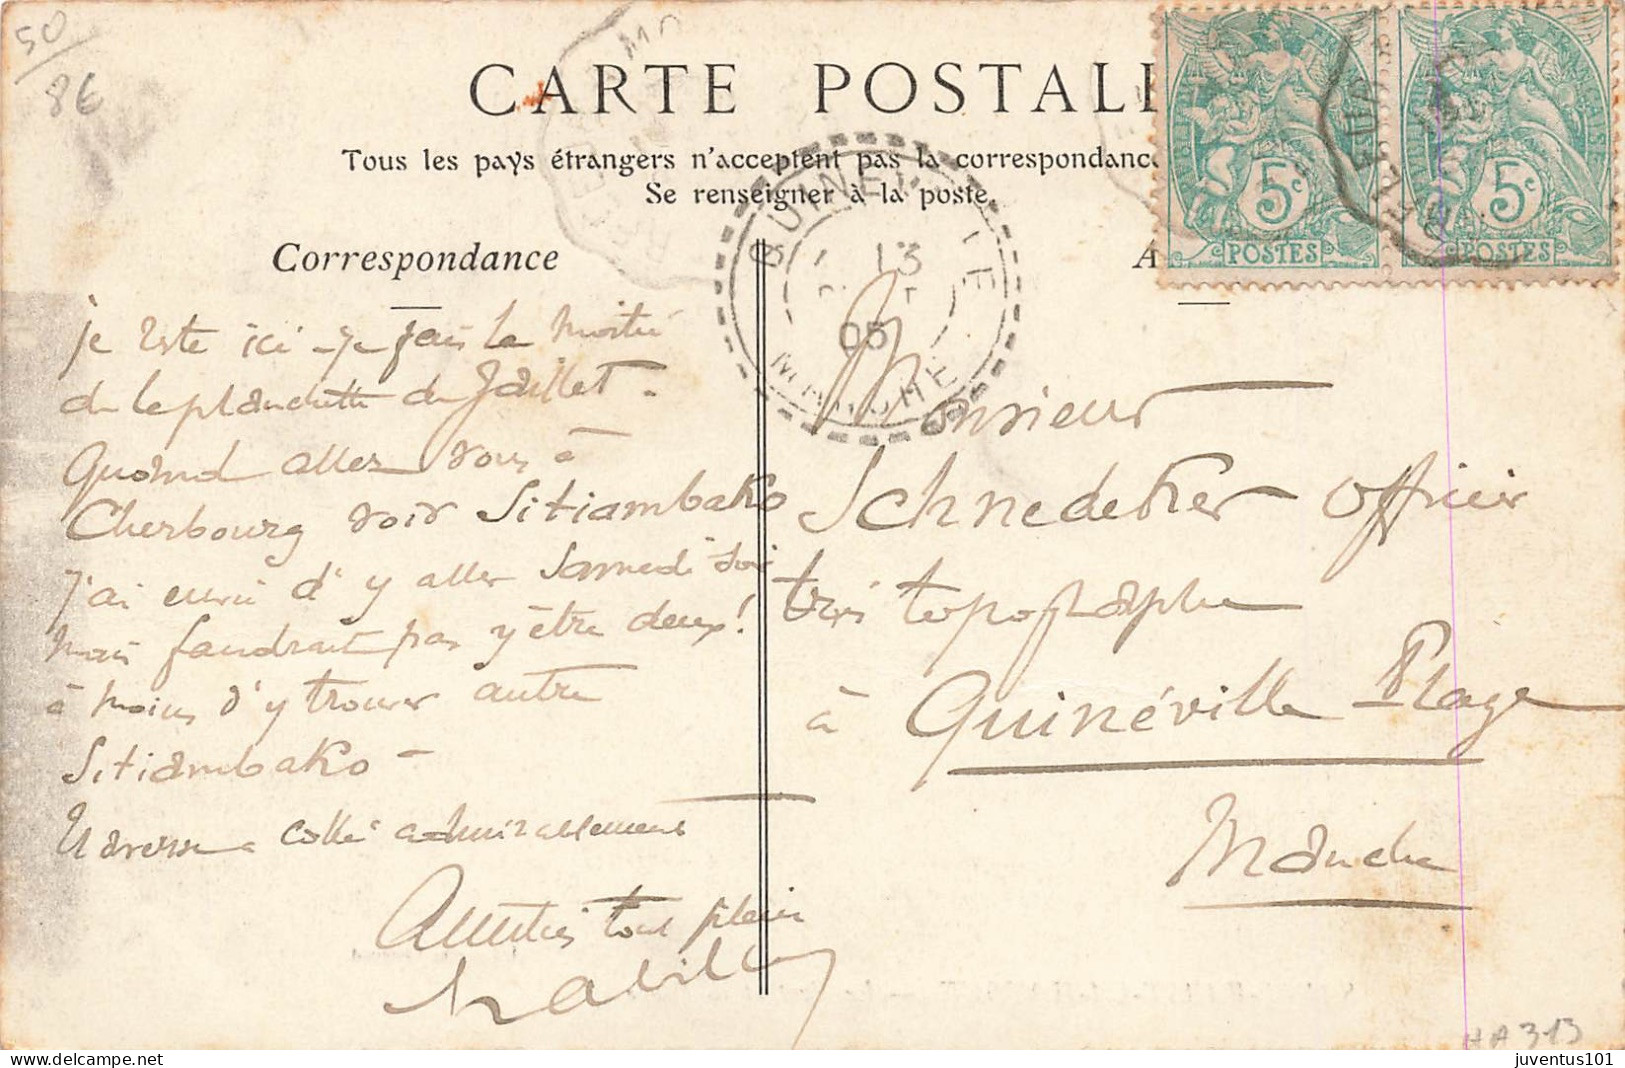 50
8€
CARTE POSTALE
Tous les pays étrangers n'acceptent pas la correspondance
Se renseigner à la poste.
Correspondance
A
QUINEVILLE
13
05
MANCHE
5c
POSTES
5c
POSTES
je reste ici - je fais la moitié
de la planchette de Jaillet -
Quand allez vous à
Cherbourg voir Sitiambako
J'ai envie d'y aller Samedi soir
mais faudrait pas y être deux!
à moins d'y trouver autre
Sitiambako -
adresse a collé admirablement
Amitiés tout plein
Monsieur
Schnedeker officier
topographe
à Quinéville Plage
Manche
HA313
juventus101